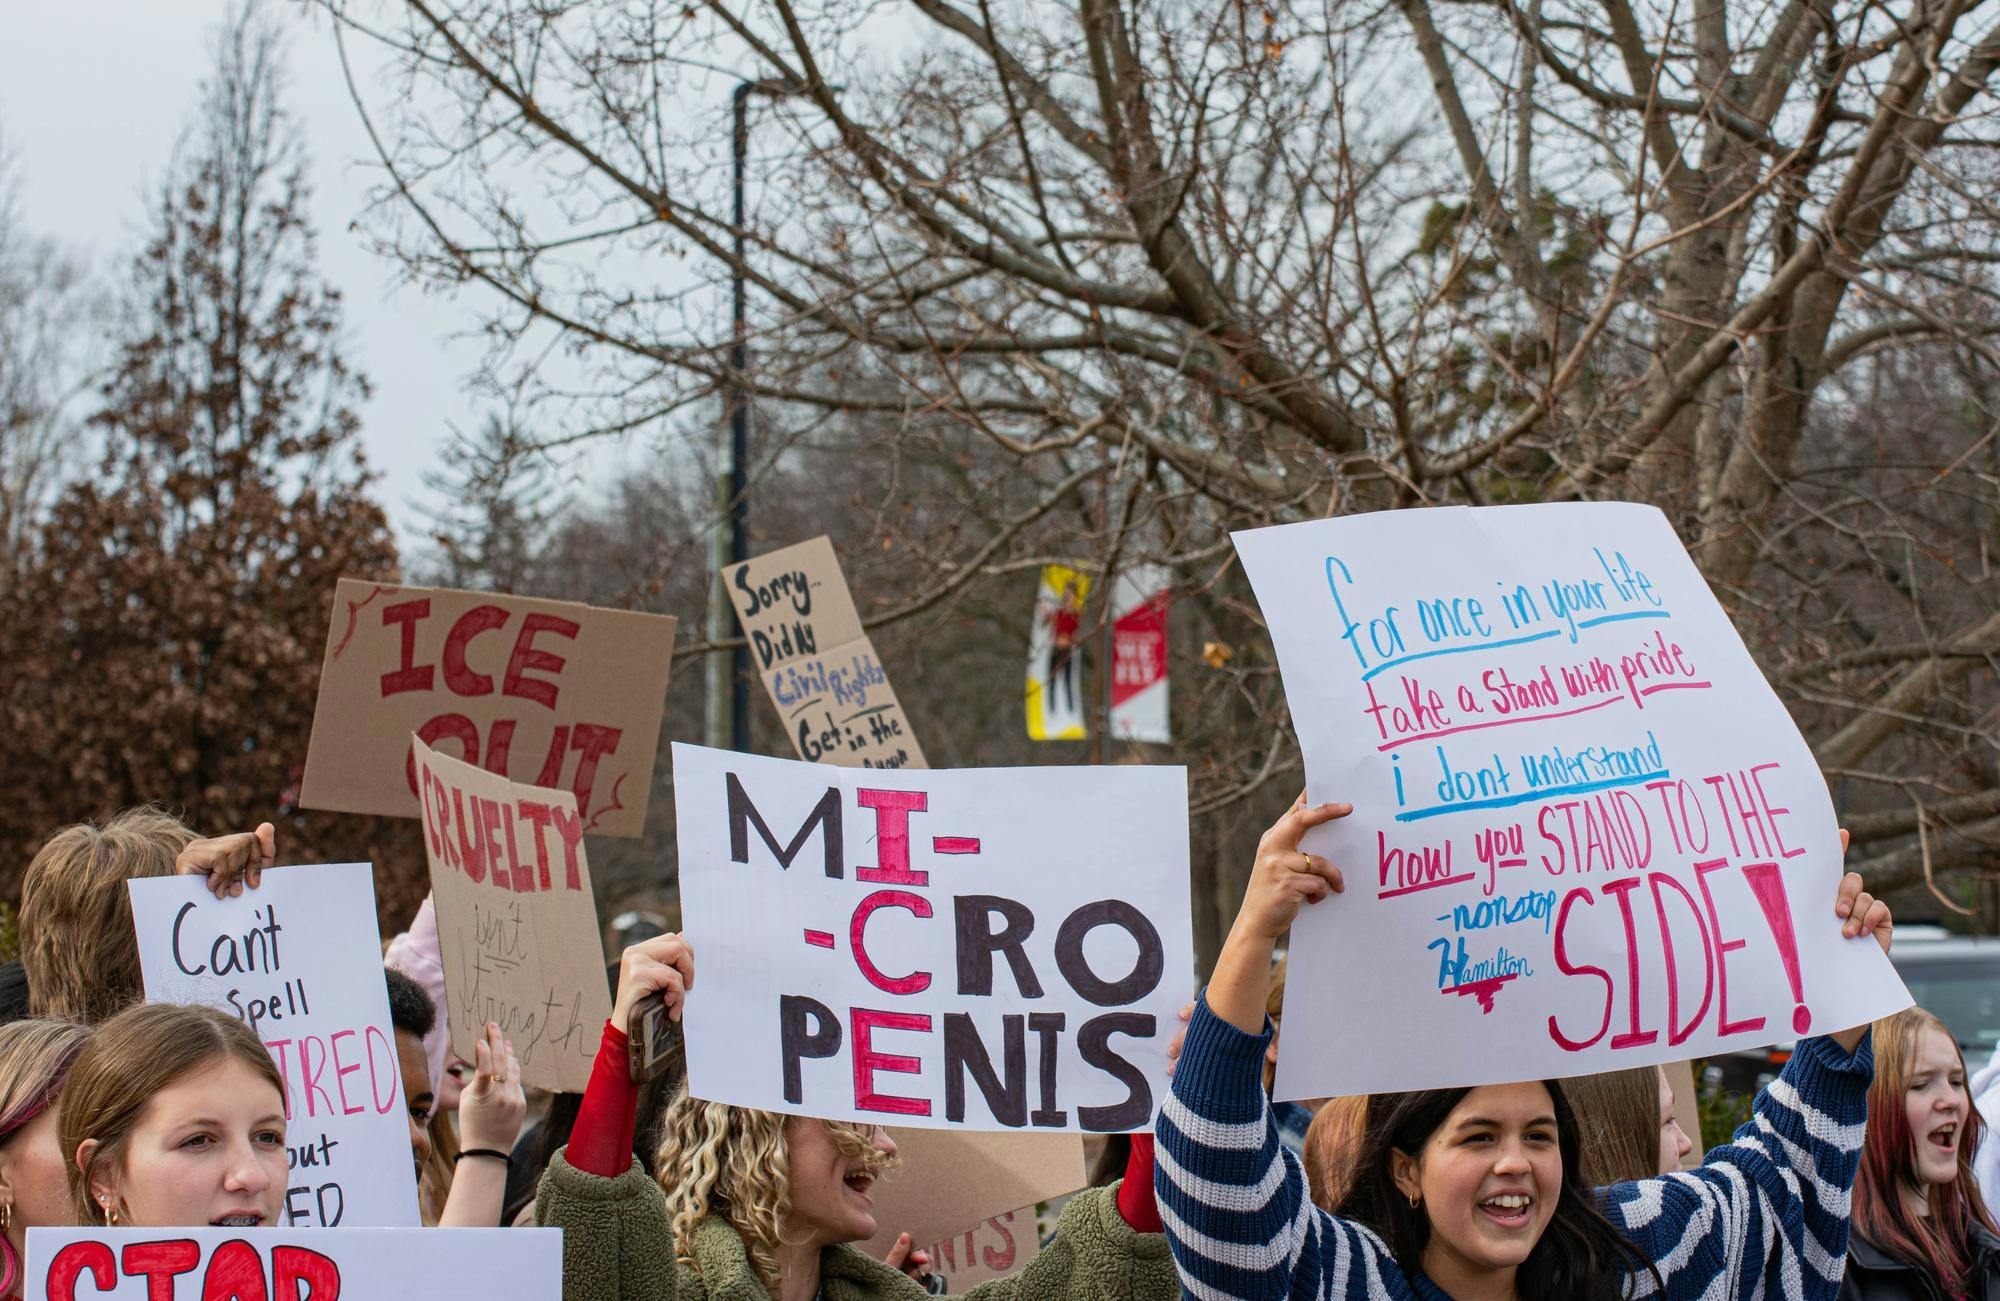 ICE
OUT
Sorry...
Did My
Civil Rights
Get in the
CRUELTY
isn't
strength
Can't
spell
TRED
out
ED
MI-
-CRO
PENIS
WE
for once in your life
take a stand with pride
i dont understand
how you STAND TO THE
SIDE!
-nonstop
Hamilton
STOP